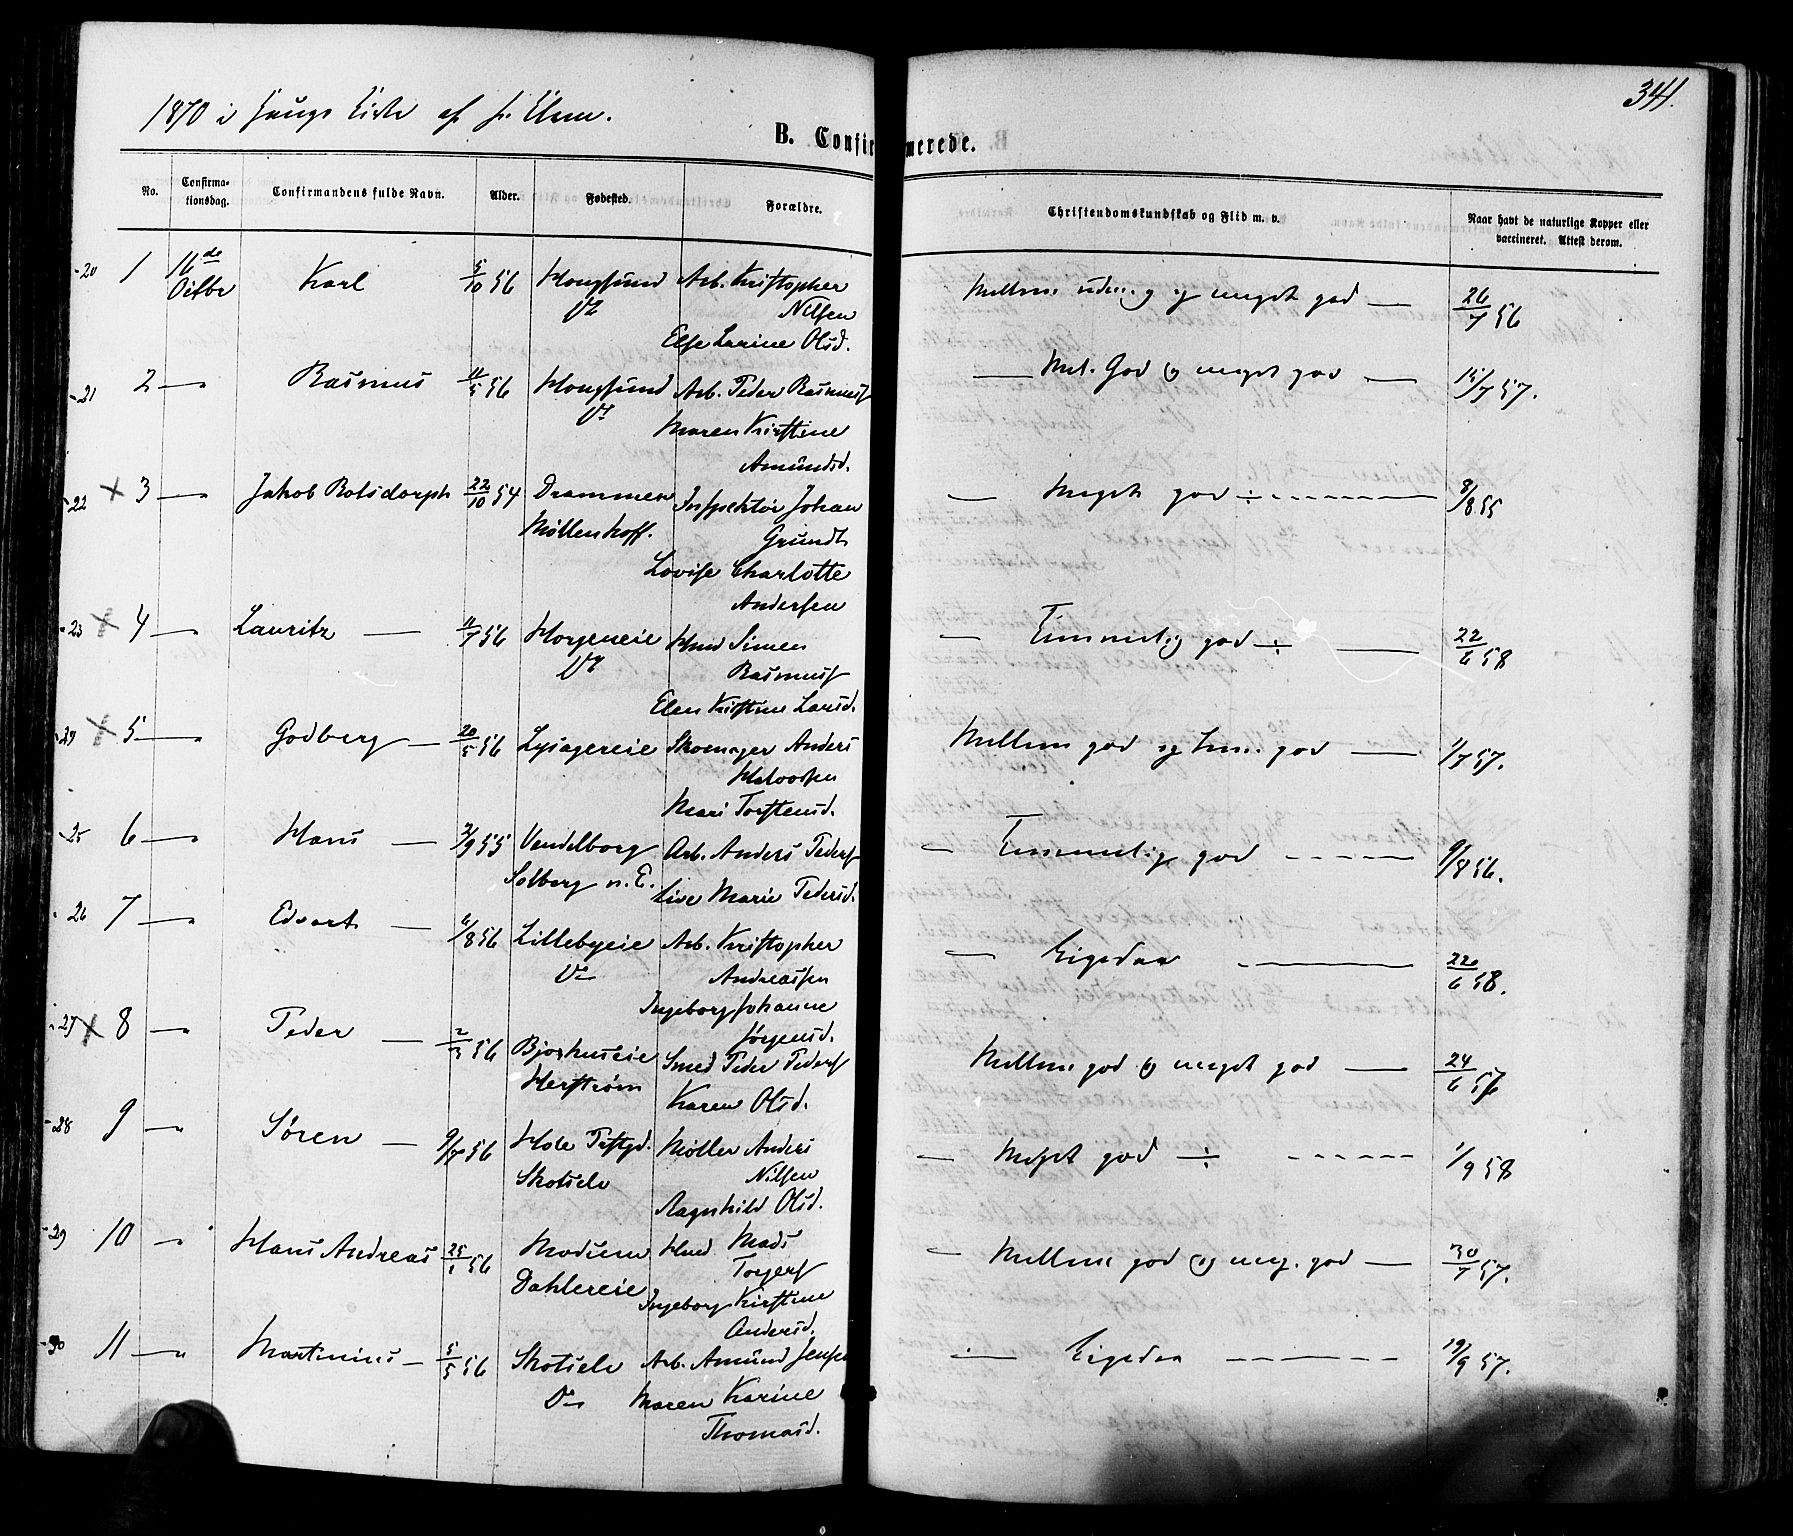 341.
1870 i Haugs Kirke af Hr. Elem.
B. Confirmerede.
No.
Confirma-
tionsdag.
Confirmandens fulde Navn.
Alder.
Fødested.
Forældre.
Christendomskundskab og Flid m. v.
Naar havt de naturlige Kopper eller
vaccineret. Attest derom.
-20 1 16de Karl 5/10 56 Hougsund Arb. Kristopher 26/7 56
Octbr Nilsen
Else Larine Olsd.
-21 2 — " Rasmus 11/5 56 Hougsund Arb. Peder Rasmuss — Mel. God og meget god — 15/7 57.
Maren Kirstine
Amundsd.
-22 x 3 — " Jakob Rolsdorph 22/10 54 Drammen Inspektør Johan — Meget god ÷ 8/8 55
Møllenhoff. Grundt
Lovise Charlotte
Andersen
-23 x 4 — " Lauritz — 11/7 56 Horgeneie Hmd Simen — Temmelig god ÷ — 22/6 58
Rasmuss
Elen Kirstine Larsd.
-24 x 5 — " Godberg — 20/5 56 Lysagereie Skomager Anders Mellem god og tem. god — 1/7 57.
Halvorsen
Mari Torstensd.
-25 6 — " Hans — 2/9 55 Vendelborg Arb. Anders Peders — Temmelig god 9/8 56.
Solberg n. E. Live Marie Pedersd.
-26 7 — " Edvart — 6/8 56 Lillebyeie Arb. Kristopher — Ligedan — 22/6 58.
Andreassen
Ingeborg Johanne
Jørgensd.
-27 x 8 — " Peder — 2/3 56 Bjoshuseie Smed Peder Peders Mellem god og meget god — 24/6 57
Herstrøm Karen Olsd.
-28 9 — " Søren — 9/7 56 Hole Prstgd. Møller Anders — Meget god ÷ 1/9 58
Skotselv Nilsen
Ragnhild Olsd.
-29 10 — " Hans Andreas 25/1 56 Modsum Hmd. Mads — Mellem god og meg. god — 30/7 57.
Dahlereie Torgers
Ingeborg Kirstine
Andersd.
-30 11 — " Martinius — 5/5 56 Skotselv Arb. Amund Jenss — Ligedan 19/9 57.
Maren Karine
Thomasd.